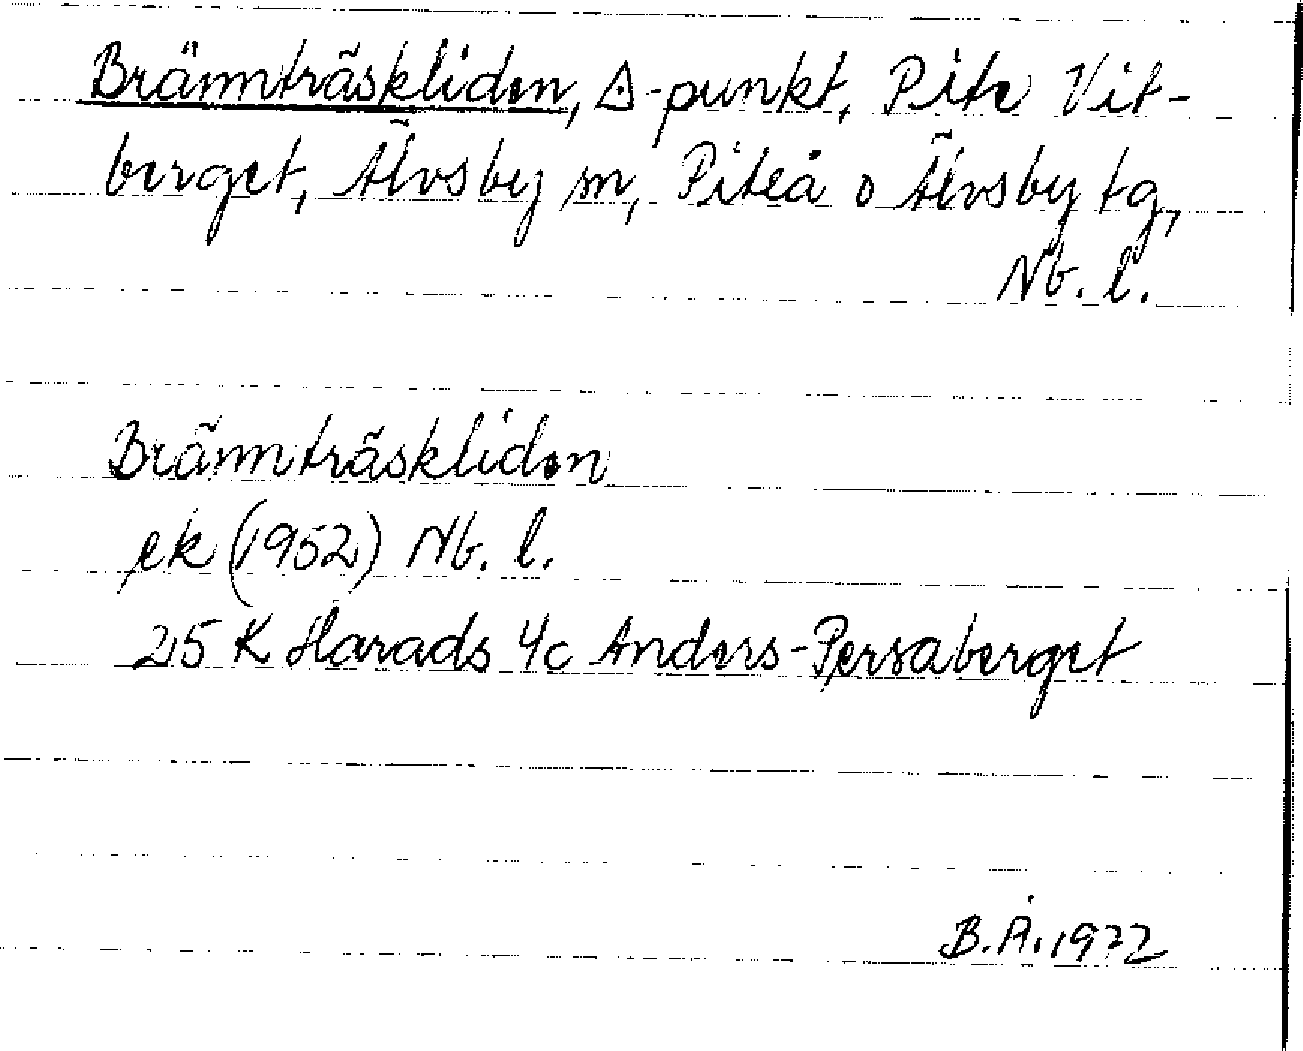 Brännträskliden, △-punkt, Pite Vit-
berget, Älvsby sn, Piteå o Älvsby tg,
Nb. l.
Brännträskliden
ek (1952) Nb. l.
25 K Harads 4c Anders-Persaberget
B.Å. 1972